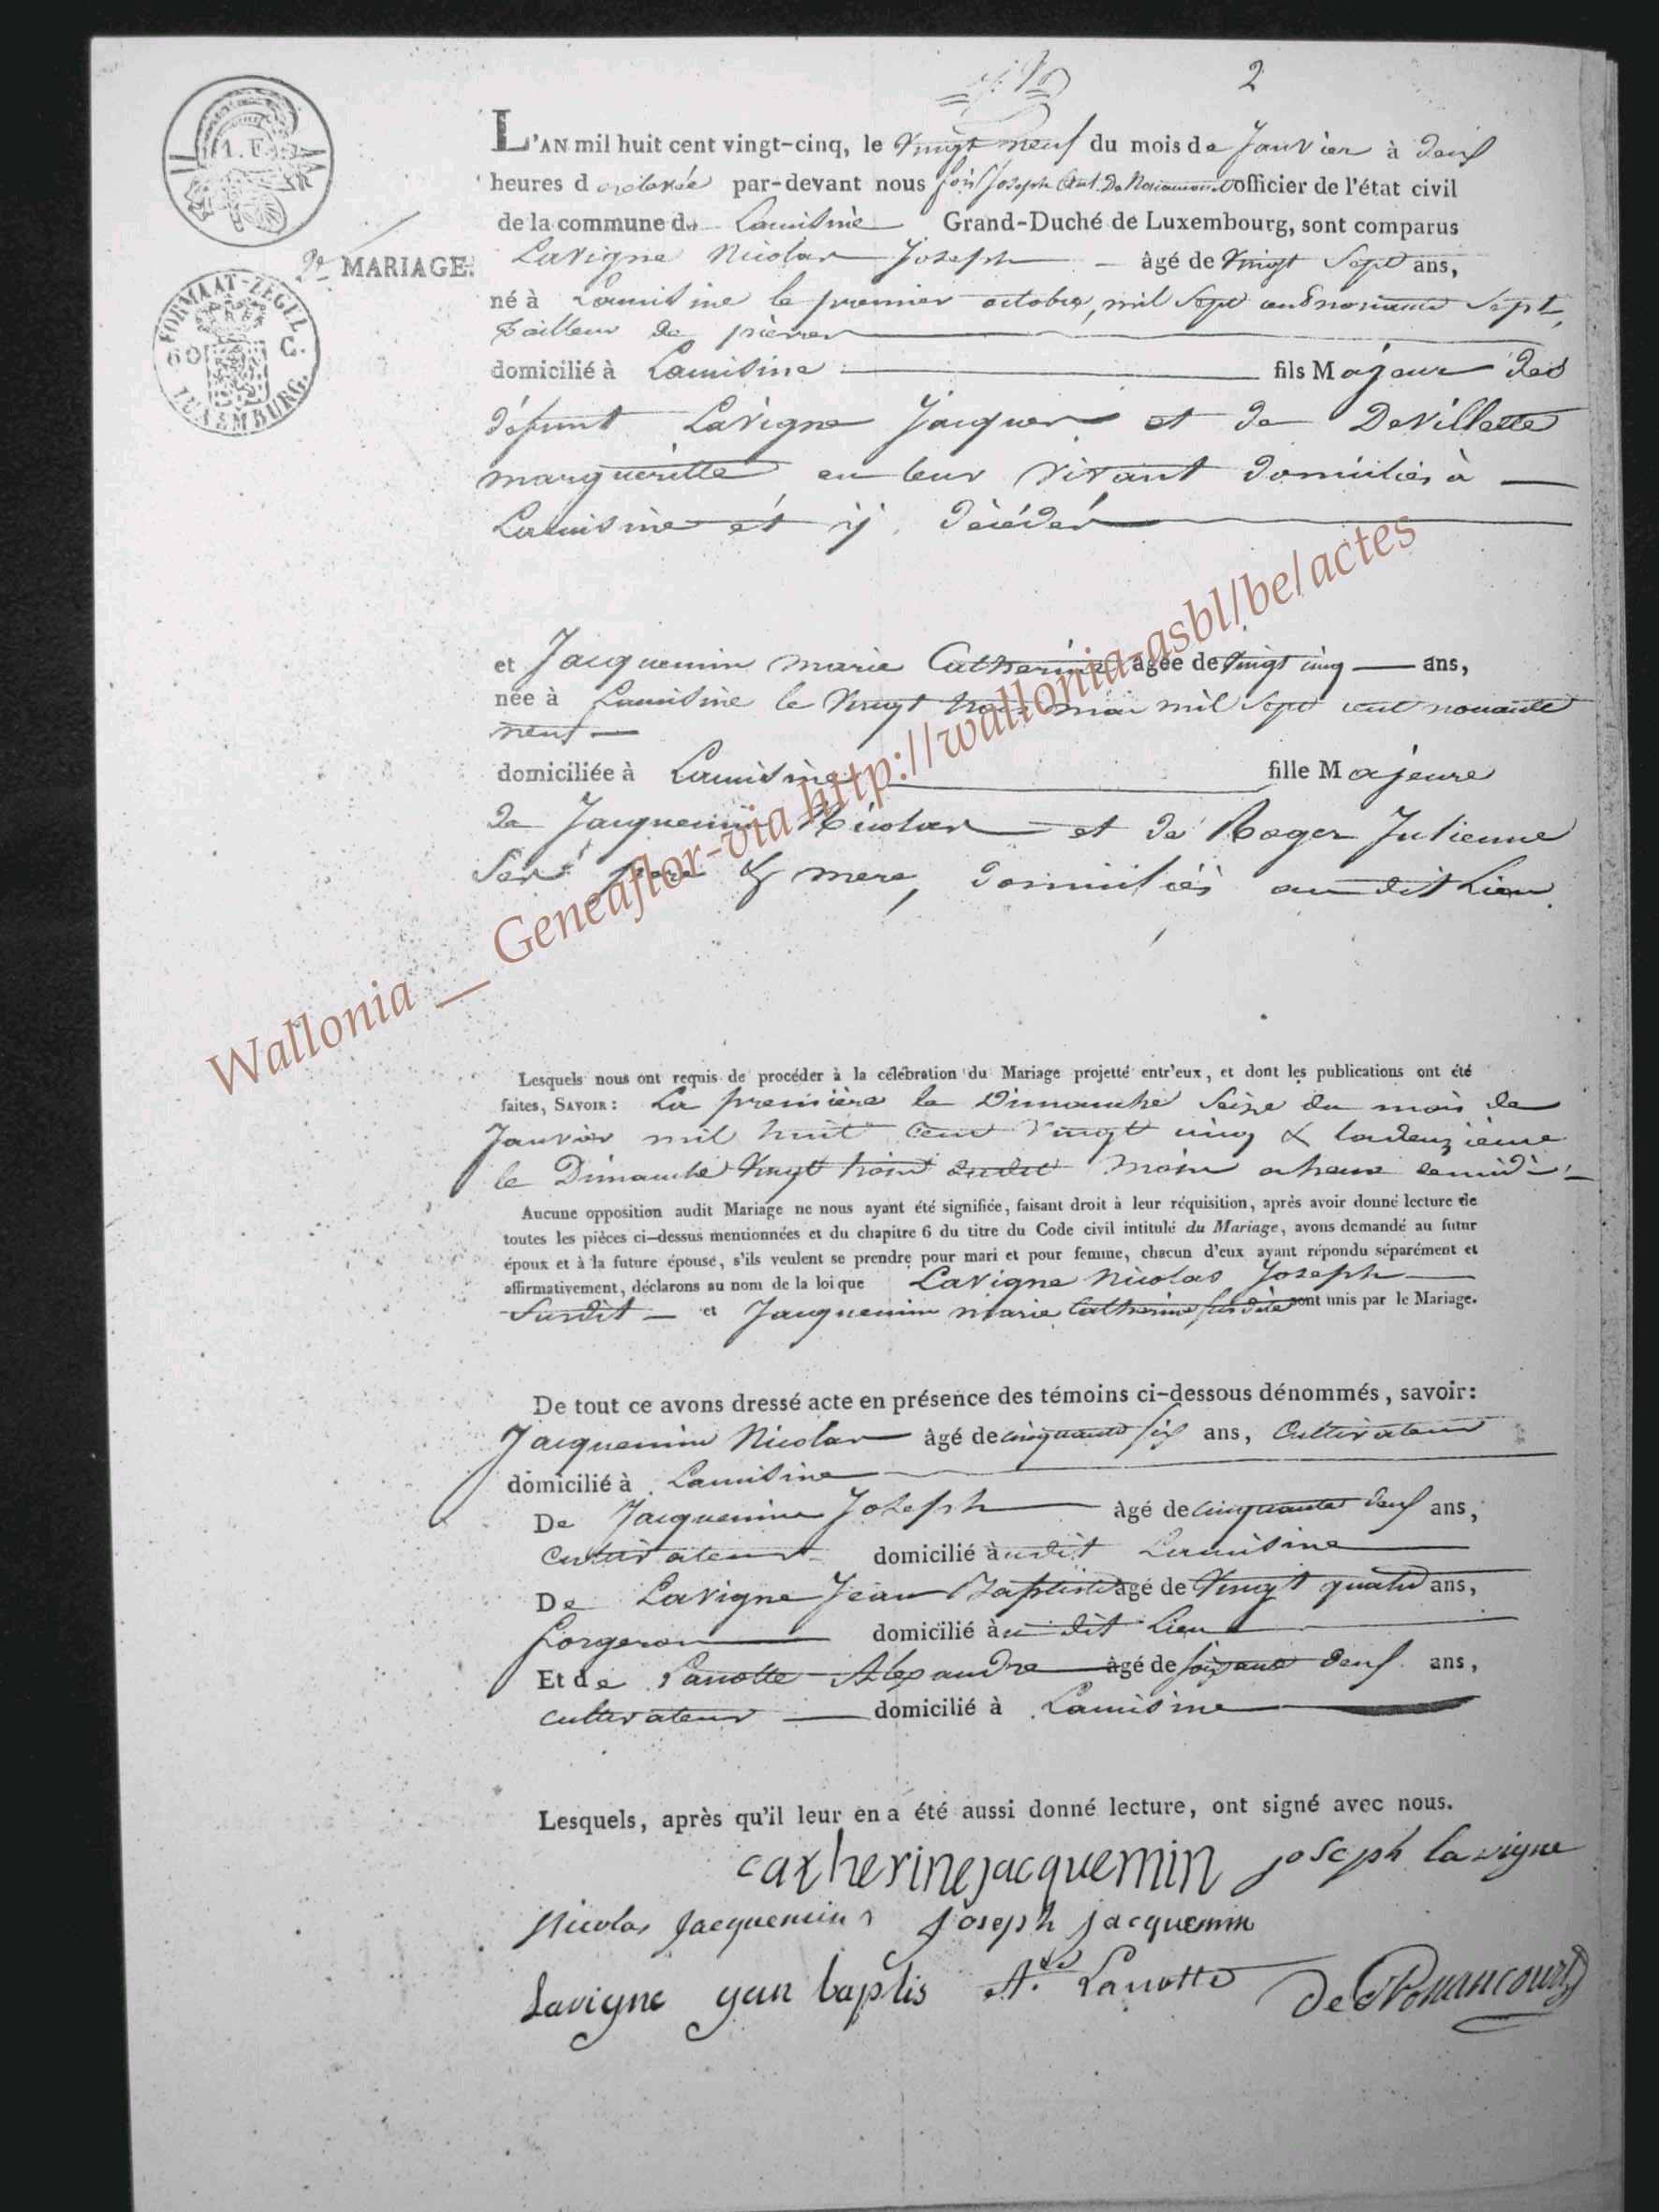 2
L'AN mil huit cent vingt-cinq, le Vingt neuf du mois de Janvier à deux
heures de relevée par-devant nous officier de l'état civil
de la commune de Lacuisine Grand-Duché de Luxembourg, sont comparus
2e MARIAGE. Lavigne Nicolas Joseph âgé de Vingt Sept ans,
né à Lacuisine le premier octobre, mil Sept cent nonante Sept,
tailleur de pierres
domicilié à Lacuisine fils Majeur des
défunt Lavigne Jacques et de Devillette
margueritte en leur vivant domiciliés à
Lacuisine et ij décédés
et Jacquemin marie Catherine âgée de Vingt cinq ans,
née à Lacuisine le Vingt trois mai mil Sept cent nonante
neuf
domiciliée à Lacuisine fille Majeure
de Jacquemin Nicolas et de Roger Julienne
Ses pere & mere, domiciliés au dit Lieu.
Lesquels nous ont requis de procéder à la célébration du Mariage projetté entr'eux, et dont les publications ont été
faites, SAVOIR: La première le Dimanche Seize du mois de
Janvier mil huit Cent Vingt cinq & la deuzième
le Dimanche Vingt trois dudit mois a heure de midi
Aucune opposition audit Mariage ne nous ayant été signifiée, faisant droit à leur réquisition, après avoir donné lecture de
toutes les pièces ci-dessus mentionnées et du chapitre 6 du titre du Code civil intitulé du Mariage, avons demandé au futur
époux et à la future épouse, s'ils veulent se prendre pour mari et pour femme, chacun d'eux ayant répondu séparément et
affirmativement, déclarons au nom de la loi que Lavigne Nicolas Joseph
Susdit et Jacquemin Marie Catherine Susdite sont unis par le Mariage.
De tout ce avons dressé acte en présence des témoins ci-dessous dénommés, savoir:
Jacquemin Nicolas âgé de cinquante six ans, Cultivateur
domicilié à Lacuisine
De Jacquemin Joseph âgé de cinquante deux ans,
Cultivateur domicilié audit Lacuisine
De Lavigne Jean Baptiste âgé de Vingt quatre ans,
forgeron domicilié au dit Lieu
Et de Lanotte Alexandre âgé de soixante deux ans,
cultivateur domicilié à Lacuisine
Lesquels, après qu'il leur en a été aussi donné lecture, ont signé avec nous.
catherine jacquemin joseph lavigne
Nicolas Jacquemin joseph jacquemin
Lavigne gan baptis A. Lanotte
FORMAAT-ZEGEL
60 C.
LUXEMBURG.
Wallonia __ Geneaflor-via http://wallonia-asbl/be/actes